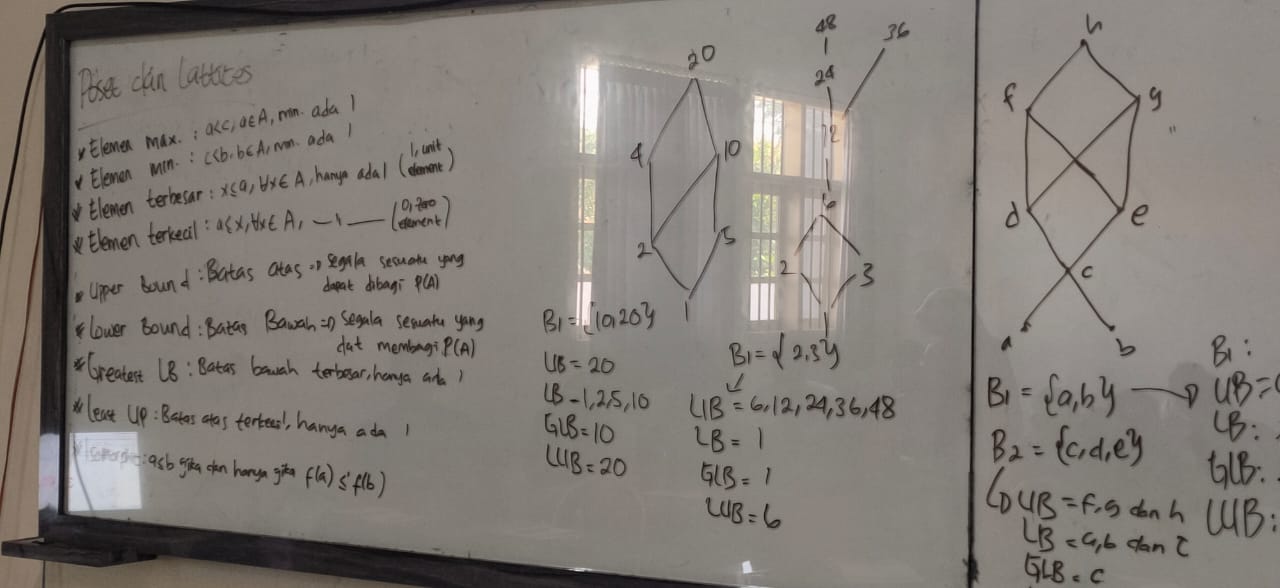 Poset dan Lattices
* Elemen max. : a<c, a∈A, min. ada 1
* Elemen min. : c<b, b∈A, min. ada 1
* Elemen terbesar : x≤a, ∀x∈A, hanya ada 1 (1, unit element)
* Elemen terkecil : a≤x, ∀x∈A, —"— (0, zero element)
* Upper Bound : Batas atas => segala sesuatu yang
dapat dibagi P(A)
* Lower Bound : Batas Bawah => Segala sesuatu yang
dat membagi P(A)
* Greatest LB : Batas bawah terbesar, hanya ada 1
* Least UP : Batas atas terkecil, hanya ada 1
: a≤b jika dan hanya jika f(a) ≤' f(b)
20
4
10
2
5
1
B1 = {10,20}
UB = 20
LB = 1,2,5,10
GLB = 10
LUB = 20
48
36
24
12
6
2
3
B1 = {2,3}
UB = 6,12,24,36,48
LB = 1
GLB = 1
LUB = 6
h
f
g
d
e
c
a
b
B1 = {a,b}
B2 = {c,d,e}
UB = f,g dan h
LB = a,b dan c
GLB = c
B1 :
UB =
LB :
GLB :
LUB :